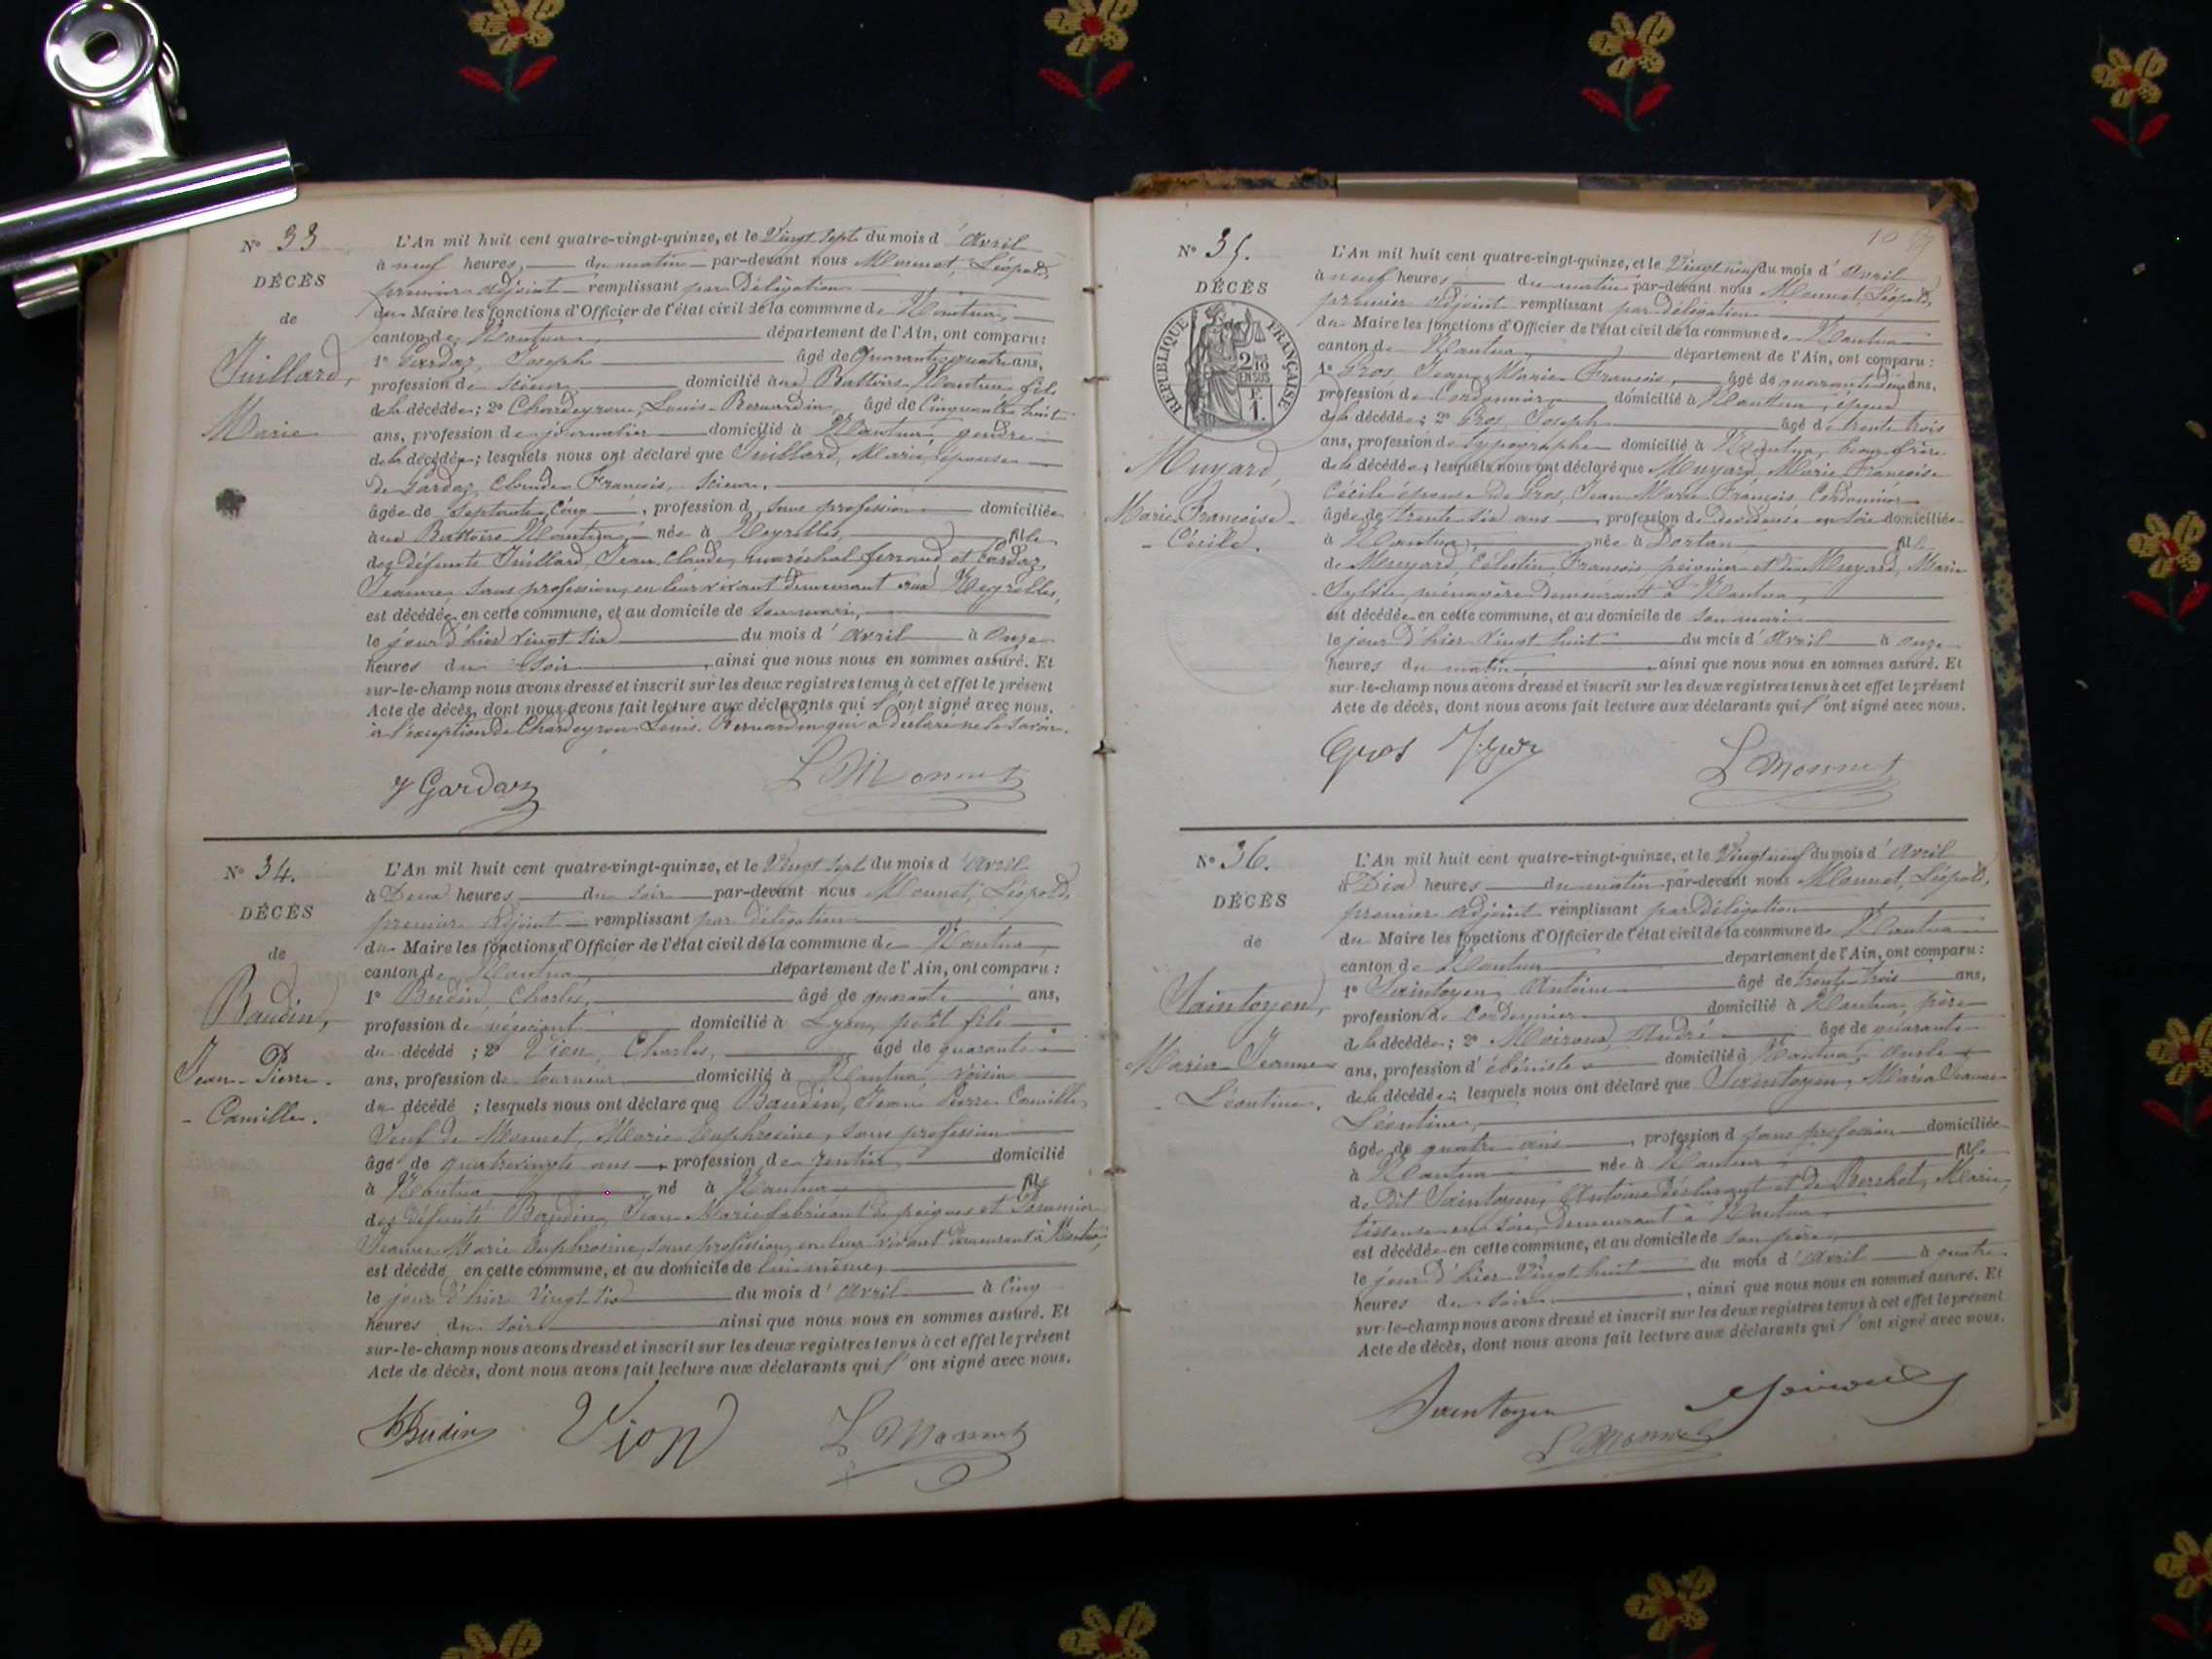 N° 33
DÉCÈS
de
Juillard,
Marie
L'An mil huit cent quatre-vingt-quinze, et le Vingt sept du mois d'Avril
à neuf heures, du matin par-devant nous Monnet, Léopold,
premier adjoint remplissant par délégation
du Maire les fonctions d'Officier de l'état civil de la commune de Nantua,
canton de Nantua, département de l'Ain, ont comparu :
1° Gardaz, Joseph âgé de quarante quatre ans,
profession de scieur, domicilié aux Battoirs Nantua, fils
de la décédée ; 2° Chardeyron, Louis-Bernardin, âgé de Cinquante huit
ans, profession de journalier domicilié à Nantua, gendre
de la décédée ; lesquels nous ont déclaré que Juillard, Marie, épouse
de Gardaz, Claude François, scieur,
âgée de Septante Cinq, profession d sans profession domiciliée
aux Battoirs Nantua, née à Neyrolles, fille
des défunts Juillard, Jean Claude, maréchal ferrand et Gardaz,
Jeanne, sans profession, en leur vivant demeurant aux Neyrolles,
est décédée en cette commune, et au domicile de son mari,
le jour d'hier vingt six du mois d'avril à onze
heures du soir, ainsi que nous nous en sommes assuré. Et
sur-le-champ nous avons dressé et inscrit sur les deux registres tenus à cet effet le présent
Acte de décès, dont nous avons fait lecture aux déclarants qui l'ont signé avec nous.
à l'exception de Chardeyron Louis-Bernardin qui a déclaré ne le savoir.
J Gardaz L Monnet
N° 34.
DÉCÈS
de
Baudin,
Jean-Pierre-
-Camille.
L'An mil huit cent quatre-vingt-quinze, et le Vingt sept du mois d'Avril
à Deux heures du soir par-devant nous Monnet, Léopold,
premier adjoint remplissant par délégation
du Maire les fonctions d'Officier de l'état civil de la commune de Nantua,
canton de Nantua, département de l'Ain, ont comparu :
1° Budin, Charles, âgé de quarante ans,
profession de négociant domicilié à Lyon, petit fils
du décédé ; 2° Vion, Charles, âgé de quarante
ans, profession de tourneur domicilié à Nantua, voisin
du décédé ; lesquels nous ont déclaré que Baudin, Jean Pierre Camille,
Veuf de Monnet, Marie Euphrosine, sans profession
âgé de quatrevingts ans, profession de rentier domicilié
à Nantua né à Nantua fils
des défunts Baudin, Jean Marie fabricant de peignes et
Jeanne Marie Euphrosine, sans profession, en leur vivant demeurant à Nantua,
est décédé en cette commune, et au domicile de lui même,
le jour d'hier vingt six du mois d'avril à Cinq
heures du soir ainsi que nous nous en sommes assuré. Et
sur-le-champ nous avons dressé et inscrit sur les deux registres tenus à cet effet le présent
Acte de décès, dont nous avons fait lecture aux déclarants qui l'ont signé avec nous.
Budin Vion L Monnet
10
N° 35.
DÉCÈS
RÉPUBLIQUE FRANÇAISE
2/10 EN SUS
F.
1.
Muyard,
Marie-Françoise-
-Cécile.
L'An mil huit cent quatre-vingt-quinze, et le Vingt neuf du mois d'Avril
à neuf heures du matin par-devant nous Monnet, Léopold,
premier adjoint remplissant par délégation
du Maire les fonctions d'Officier de l'état civil de la commune de Nantua
canton de Nantua, département de l'Ain, ont comparu :
1° Gros, Jean Marie François, âgé de quarante deux ans,
profession de Cordonnier, domicilié à Nantua, époux
de la décédée ; 2° Gros, Joseph âgé de trente trois
ans, profession de typographe domicilié à Nantua, beau frère
de la décédée ; lesquels nous ont déclaré que Muyard, Marie Françoise
Cécile épouse de Gros, Jean Marie François, Cordonnier
âgée de trente six ans, profession de devideuse en soie domiciliée
à Nantua, née à Dortan fille
de Muyard, Célestin, François, peignier et de Muyard, Marie
Sylvie, ménagère demeurant à Nantua,
est décédée en cette commune, et au domicile de son mari
le jour d'hier vingt huit du mois d'Avril à onze
heures du matin, ainsi que nous nous en sommes assuré. Et
sur-le-champ nous avons dressé et inscrit sur les deux registres tenus à cet effet le présent
Acte de décès, dont nous avons fait lecture aux déclarants qui l'ont signé avec nous.
Gros L Monnet
N° 36.
DÉCÈS
de
Saintoyen,
Maria-Jeanne
-Léontine.
L'An mil huit cent quatre-vingt-quinze, et le Vingt neuf du mois d'Avril
à Dix heures du matin par-devant nous Monnet, Léopold,
premier adjoint remplissant par délégation
du Maire les fonctions d'Officier de l'état civil de la commune de Nantua
canton de Nantua département de l'Ain, ont comparu :
1° Saintoyen, Antoine âgé de trente trois ans,
profession de Cordonnier domicilié à Nantua, père
de la décédée ; 2° Moiroud, André âgé de quarante
ans, profession d'ébéniste domicilié à Nantua, oncle
de la décédée ; lesquels nous ont déclaré que Saintoyen, Maria Jeanne
Léontine,
âgée de quatre ans, profession d sans profession domiciliée
à Nantua née à Nantua, fille
de dit Saintoyen, Antoine déclarant et de Berchet, Marie,
tisseuse en soie, demeurant à Nantua,
est décédée en cette commune, et au domicile de son père,
le jour d'hier vingt huit du mois d'Avril à quatre
heures du soir, ainsi que nous nous en sommes assuré. Et
sur-le-champ nous avons dressé et inscrit sur les deux registres tenus à cet effet le présent
Acte de décès, dont nous avons fait lecture aux déclarants qui l'ont signé avec nous.
Saintoyen Moiroud
L Monnet